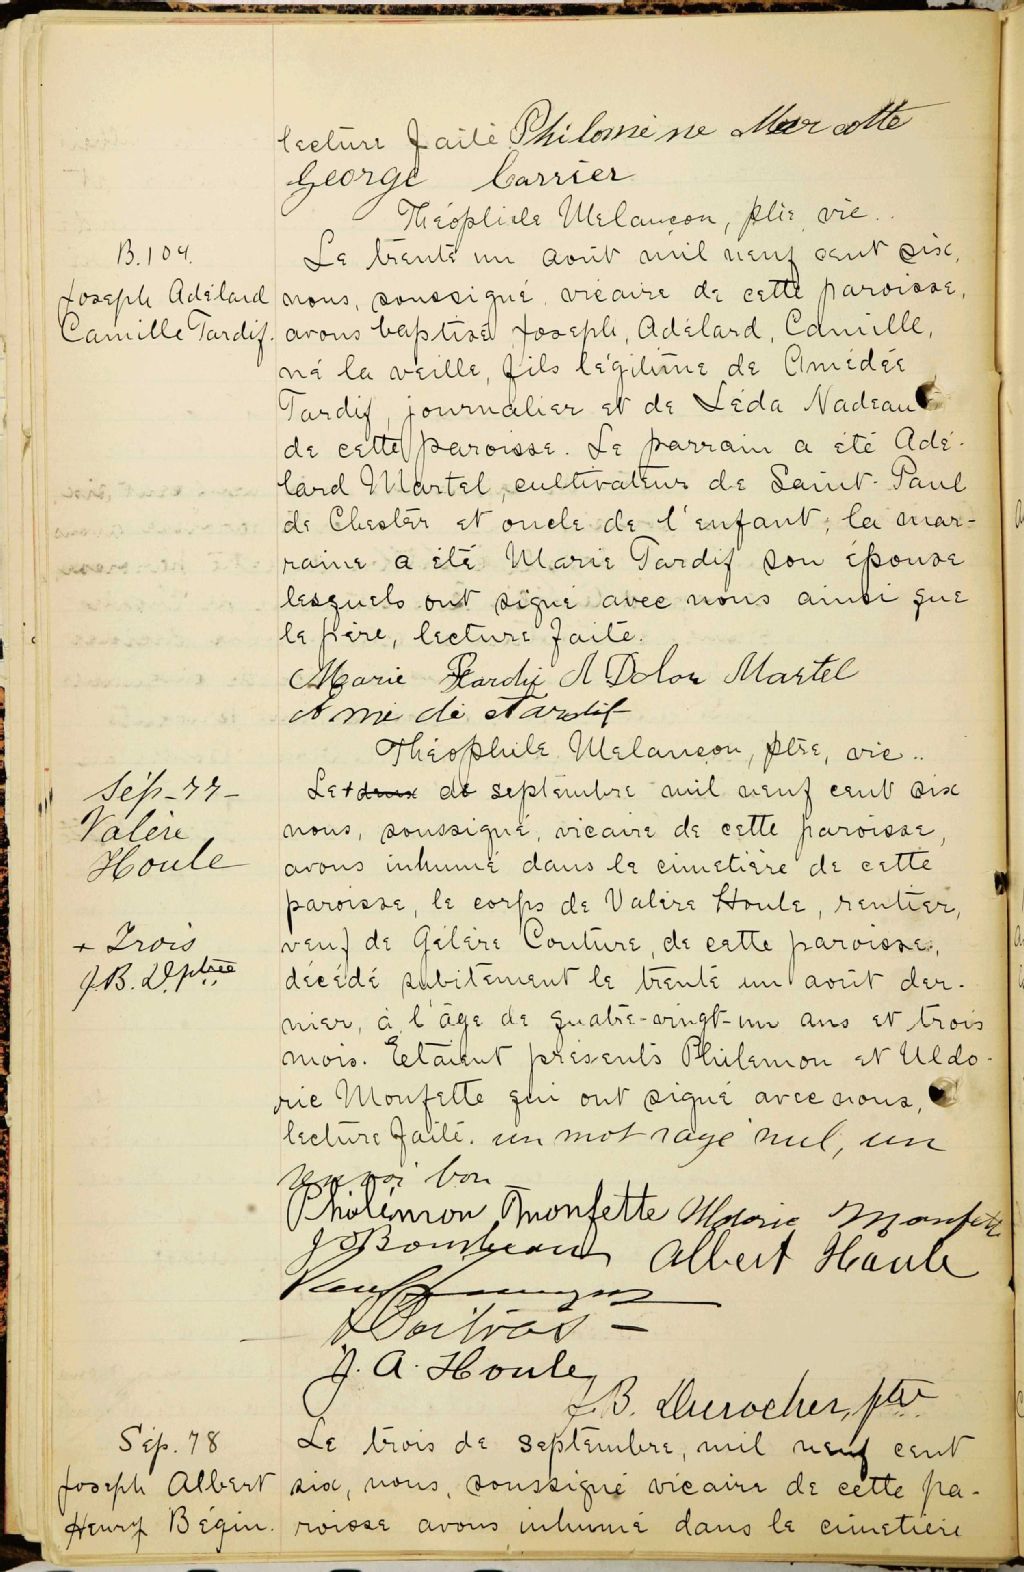 lecture faite Philomène Marcotte
George Carrier
Théophile Melançon, ptre, vic..
B.104.
Joseph Adélard
Camille Tardif.
Le trente un août mil neuf cent six,
nous, soussigné, vicaire de cette paroisse,
avons baptisé Joseph, Adélard, Camille,
né la veille, fils légitime de Amédée
Tardif, journalier et de Léda Nadeau
de cette paroisse. Le parrain a été Adé-
lard Martel, cultivateur de Saint-Paul
de Chester et oncle de l'enfant, la mar-
raine a été Marie Tardif son épouse
lesquels ont signé avec nous ainsi que
le père, lecture faite.
Marie Tardif A Dolor Martel
Amédé Tardif
Théophile Melançon, ptre, vic..
Sép-77-
Valère
Houle
+ Trois
J.B.D. ptre
Le + deux de septembre mil neuf cent six
nous, soussigné, vicaire de cette paroisse,
avons inhumé dans le cimetière de cette
paroisse, le corps de Valère Houle, rentier,
veuf de Gélère Couture, de cette paroisse,
décédé subitement le trente un août der-
nier, à l'âge de quatre-vingt-un ans et trois
mois. Etaient présents Philémon et Uldo-
ric Monfette qui ont signé avec nous,
lecture faite. un mot rayé nul, un
renvoi bon
Philémon Monfette Uldoric Monfette
Albert Houle
J. A. Houle
J.B. Durocher, ptre
Sép. 78
Joseph Albert
Henry Bégin.
Le trois de septembre, mil neuf cent
six, nous, soussigné vicaire de cette pa-
roisse avons inhumé dans le cimetière